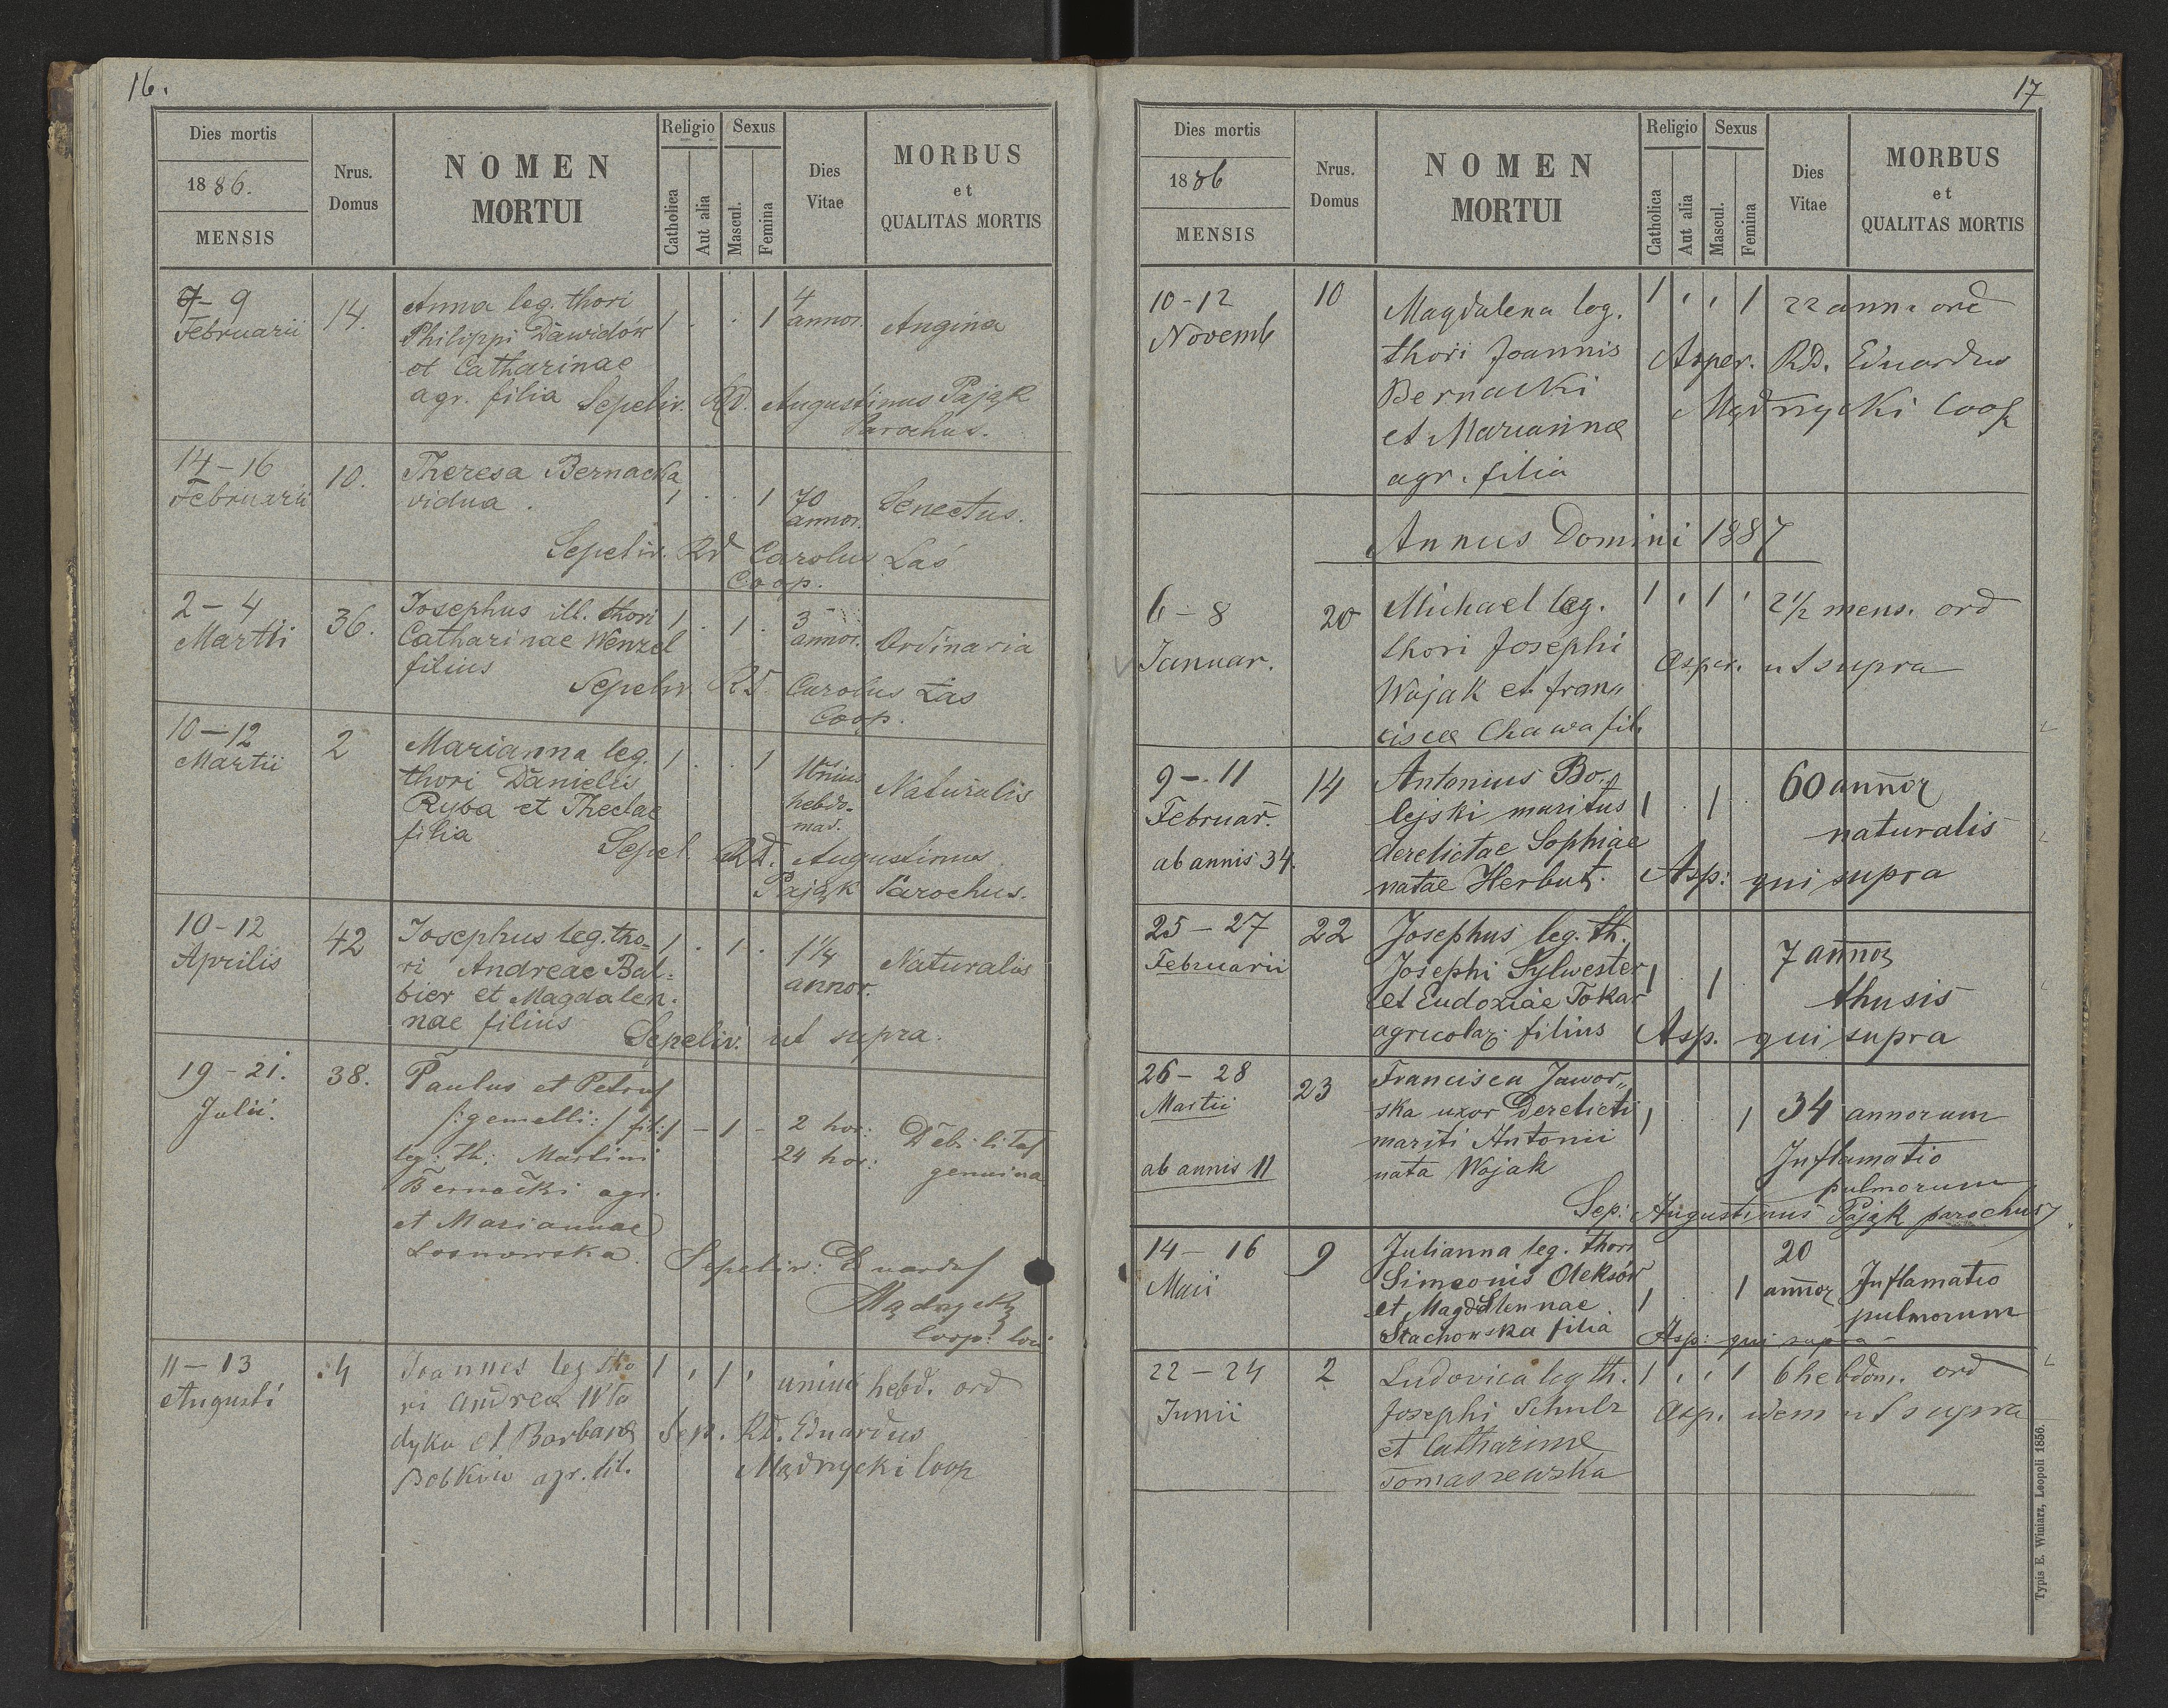 16.
Dies mortis
1886.
MENSIS
Nrus.
Domus
NOMEN
MORTUI
Religio
Catholica
Aut alia
Sexus
Mascul.
Femina
Dies
Vitae
MORBUS
et
QUALITAS MORTIS
7- 9
Februarii
14.
Anna leg. thori
Philippi Dawidów
et Catharinae
agr. filia
1 . . 1
4
annor.
Angina
Sepeliv. RD. Augustinus Pająk
Parochus.
14-16
Februarii
10.
Theresa Bernacka
vidua.
1 . . 1
70
annor.
Senectus.
Sepeliv. Rd Carolus Laś
Coop.
2-4
Martii
36.
Josephus ill. thori
Catharinae Wenzel
filius
1 . 1 .
3
annor.
Ordinaria
Sepeliv RD. Carolus Las
Coop.
10-12
Martii
2
Marianna leg.
thori Danielis
Ryba et Theclae
filia
1 . . 1
Unius
hebdo-
mad.
Naturalis
Sepel. RD. Augustinus
Pająk Parochus.
10-12
Aprilis
42
Josephus leg. tho-
ri Andreae Bal=
bier et Magdalen.
nae filius
1 . 1 .
1 1/4
annor.
Naturalis
Sepeliv. ut supra.
19-21.
Julii.
38.
Paulus et Petrus
/:gemelli:/ fil:
leg: th: Martini
Bernacki agr.
et Mariannae
Losnowska
1 - 1 -
2 hor:
24 hor:
Debilitas
genuina
Sepeliv: Eduardus
Mądrycki
Coop: loci
11-13
Augusti
4
Joannes leg tho
ri Andrea Wła
dyka et Barbara
Bobkiw agr. fil.
1 , 1 ,
unius hebd. ord
Sep. RD. Eduardus
Mądrzycki Coop
17
Dies mortis
1886
MENSIS
Nrus.
Domus
NOMEN
MORTUI
Religio
Catholica
Aut alia
Sexus
Mascul.
Femina
Dies
Vitae
MORBUS
et
QUALITAS MORTIS
10-12
Novemb
10
Magdalena leg.
thori Joannis
Bernacki
et Mariannæ
agr. filia
1 , , 1
22 ann. ord
Asper. RD. Eduardus
Mądrzycki Coop
Annus Domini 1887
6-8
Januar.
20
Michael leg.
thori Josephi
Wojak et fran„
ciscæ Chawa fil.
1 , 1 ,
2 1/2 mens. ord
Asper. ut supra
9-11
Februar.
ab annis 34.
14
Antonius Bo„
lejski maritus
derelictae Sophiae
natae Herbut.
1 . 1 .
60 annor
naturalis
Asp: qui supra
25-27
Februarii
22
Josephus leg. th.
Josephi Sylwester
et Eudoxiae Tokar
agricolar. filius
1 . 1
7 annor
thusis
Asp. qui supra
26-28
Martii
ab annis 11
23
Francisca Jawor„
ska uxor derelicti
mariti Antonii
nata Wojak
1 . . 1
34 annorum
Inflamatio
pulmorum
Sep: Augustinus Pająk parochus
14-16
Maii
9
Julianna leg. thori
Simeonis Oleksów
et Magdalennae.
Stachowska filia
1 . . 1
20
annor
Inflamatio
pulmorum
Asp: qui supra
22-24
Junii
2
Ludovica leg th.
Josephi Schulz
et Catharinæ
Tomaszewska
1 , , 1
6 hebdom. ord
Asp. idem ut supra
Typis E. Winiarz, Leopoli 1856.